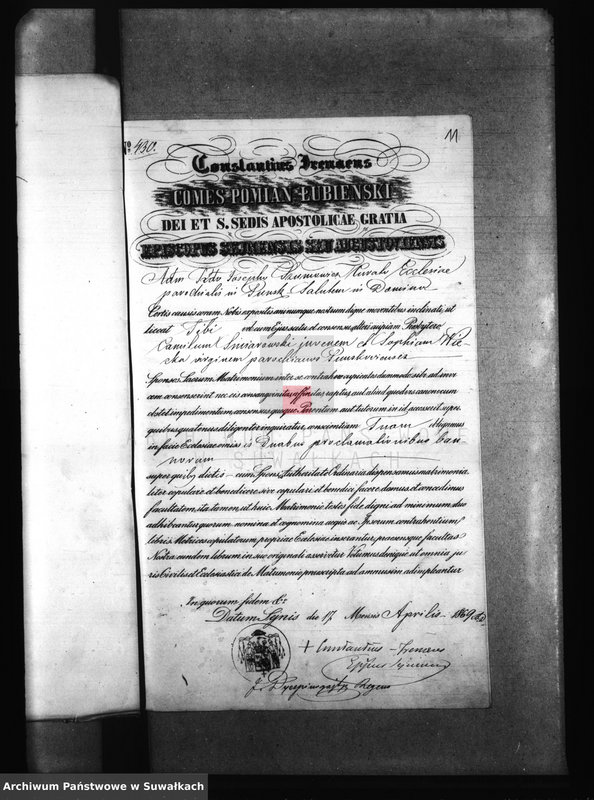 No 430.
11
Constantius Irenaeus
COMES POMIAN ŁUBIENSKI
DEI ET S. SEDIS APOSTOLICAE GRATIA
EPISCOPUS SEJNENSIS SEU AUGUSTOVIENSIS
Adm Rdo Josepho Ecclesiae
parochialis in Punsk Salutem in Domino
Certis causis coram Nobis expositis animumque nostrum digne moventibus inclinati, ut
liceat Tibi vel cum Ejus actus et consensu alteri cuipiam Presbytero,
juvenem et Sophiam
virginem parochianos Punskovienses
Sponsos Sacrum Matrimonium inter se contrahere cupientes dummodo sibi ad invi-
cem consenserint nec eis consanguinitas, affinitas, raptus, aut aliud quodvis canonicum
obstet impedimentum, consensus quoque Parentum aut tutorum in id accesserit super
quibus quatenus diligenter inquiratur, conscientiam Tuam obligamus
in facie Ecclesiae omissis Duabus proclamationibus ban
norum
super quibus dictis cum Sponsis Authoritate Ordinaria dispensamus matrimonia-
liter copulare et benedicere sive copulari et benedici facere damus et concedimus
facultatem, ita tamen, ut huic Matrimonio testes fide digni ad minimum duo
adhibeantur quorum nomina et cognomina aeque ac Ipsorum contrahentium
libris Metrices copulatorum propriae Ecclesiae inserantur, praesensque facultas
Nostra eundem librum in suo originali asservetur Volumus denique ut omnia ju-
ris Civilis et Ecclesiastici de Matrimonio praescripta ad amussim adimpleantur
In quorum fidem &c
Datum Sejnis die 17 Mensis Aprilis 1869
+ Constantius Irenaeus
Eppus Sejnensis
Regens
SUWAŁKACH
Archiwum Państwowe w Suwałkach